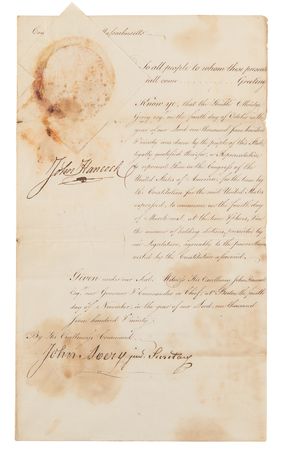 Com Massachusetts
To all people to whom these presents
shall come Greeting
Know ye, that the Honble Elbridge
Gerry esq. on the fourth day of October in the
year of our Lord one thousand seven hundred
& ninety was chosen by the people of this State
legally qualified therefor, a Representative
to represent them in the Congress of the
United States of America, for the term by
the Constitution for the said United States
expressed, to commence on the fourth day
of March next, at the time
the manner of holding elections, provided by
our Legislature, agreeably to the
by the Constitution aforesaid.
John Hancock
Given under our Seal. Witness His Excellency John Hancock
Esqr our Governor & Commander in Chief, at Boston, the
day of November, in the year of our Lord, one thousand
seven hundred & ninety.
By His Excellency's Command
John Avery junr. Secretary